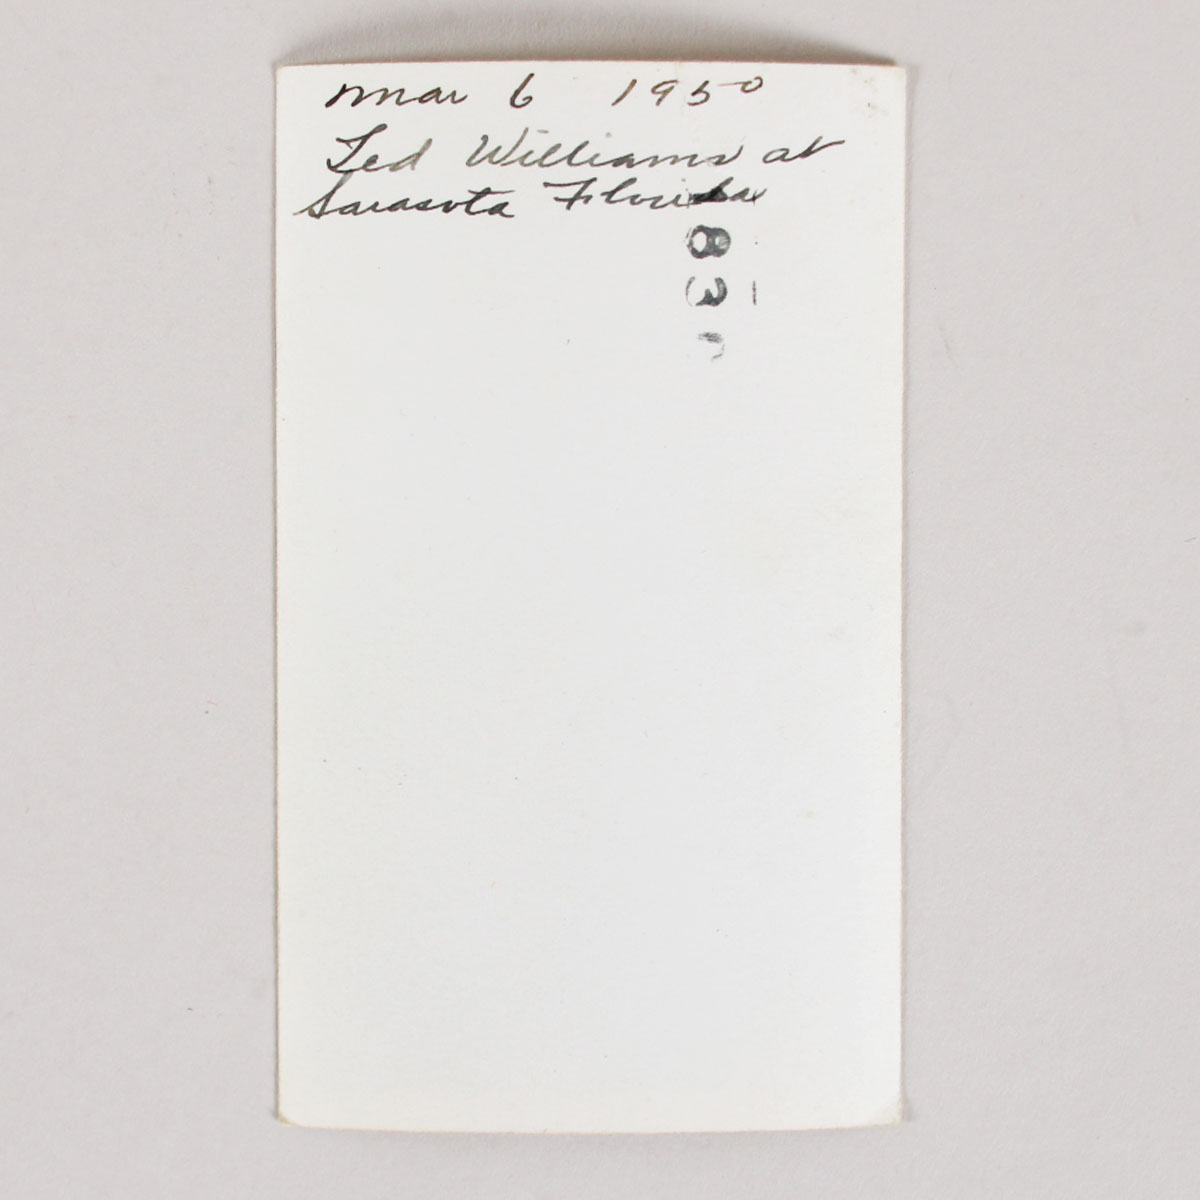 Mar 6 1950
Ted Williams at
Sarasota Florida
83